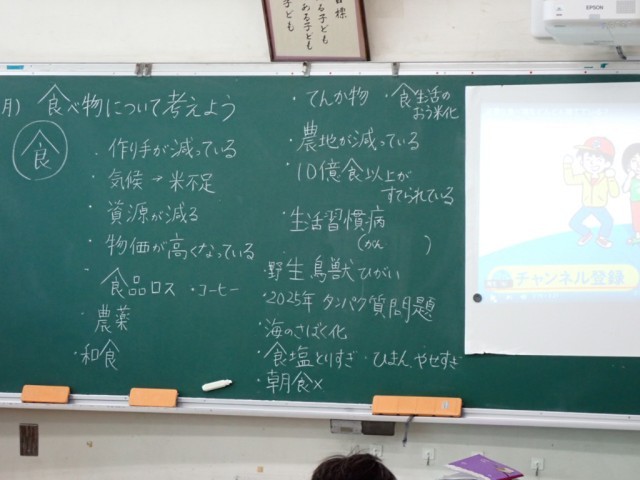 目標
る子ども
ある子ども
子ども
EPSON
月) 食べ物について考えよう
食
・作り手が減っている
・気候→米不足
・資源が減る
・物価が高くなっている
・食品ロス ・コーヒー
・農薬
・和食
・てんか物 ・食生活の
おう米化
・農地が減っている
・10億食以上が
すてられている
・生活習慣病
(がん )
・野生鳥獣ひがい
・2025年 タンパク質問題
・海のさばく化
・食塩とりすぎ ・ひまん、やせすぎ
・朝食×
チャンネル登録